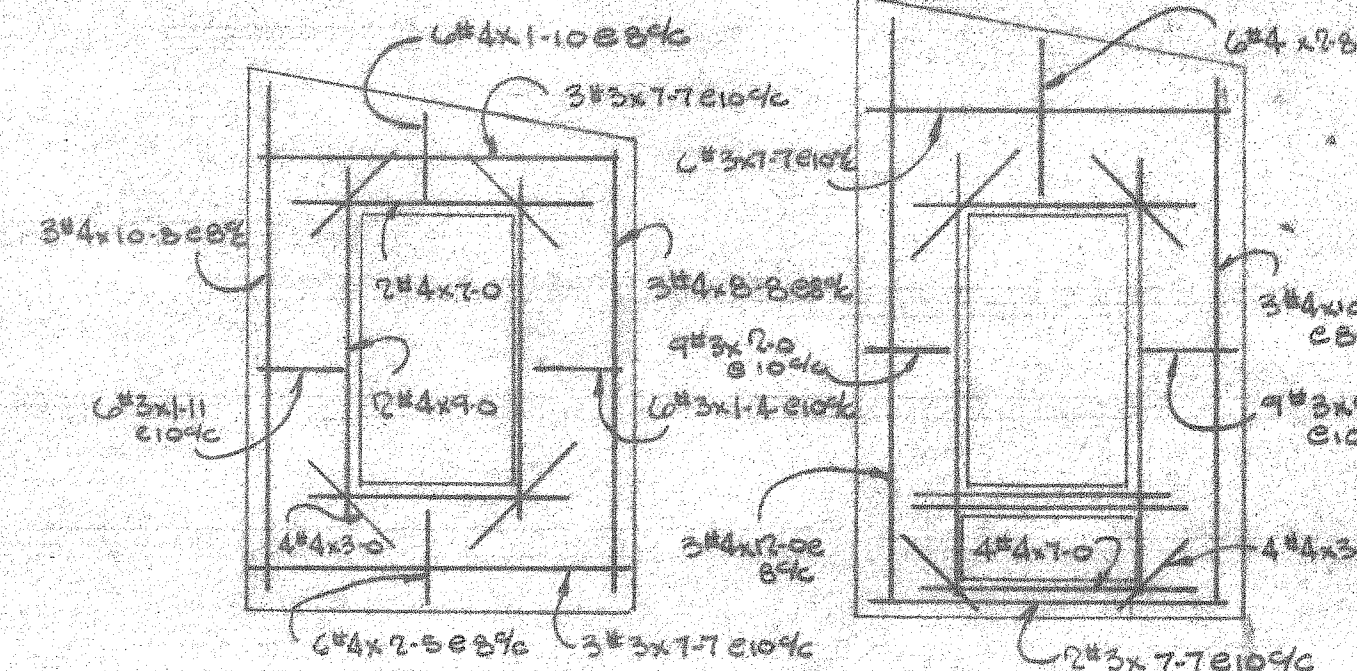 6#4x1-10@8"c/c
3#3x7-7@10c/c
3#4x10-8@8"c/c
2#4x7-0
3#4x8-8@8"c/c
2#4x9-0
6#3x1-11
@10c/c
6#3x1-4@10c/c
4#4x3-0
6#4x2-5@8"c/c
3#3x7-7@10c/c
6#4x2-8
6#3x7-7@10c/c
3#4x10
@8
9#3x2-0
@10c/c
9#3x
@10
3#4x12-0@
8"c/c
4#4x7-0
4#4x3
2#3x7-7@10c/c